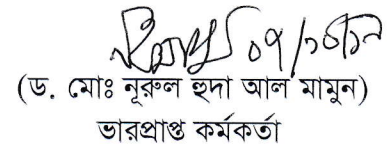 (ড. মোঃ নূরুল হুদা আল মামুন)
ভারপ্রাপ্ত কর্মকর্তা